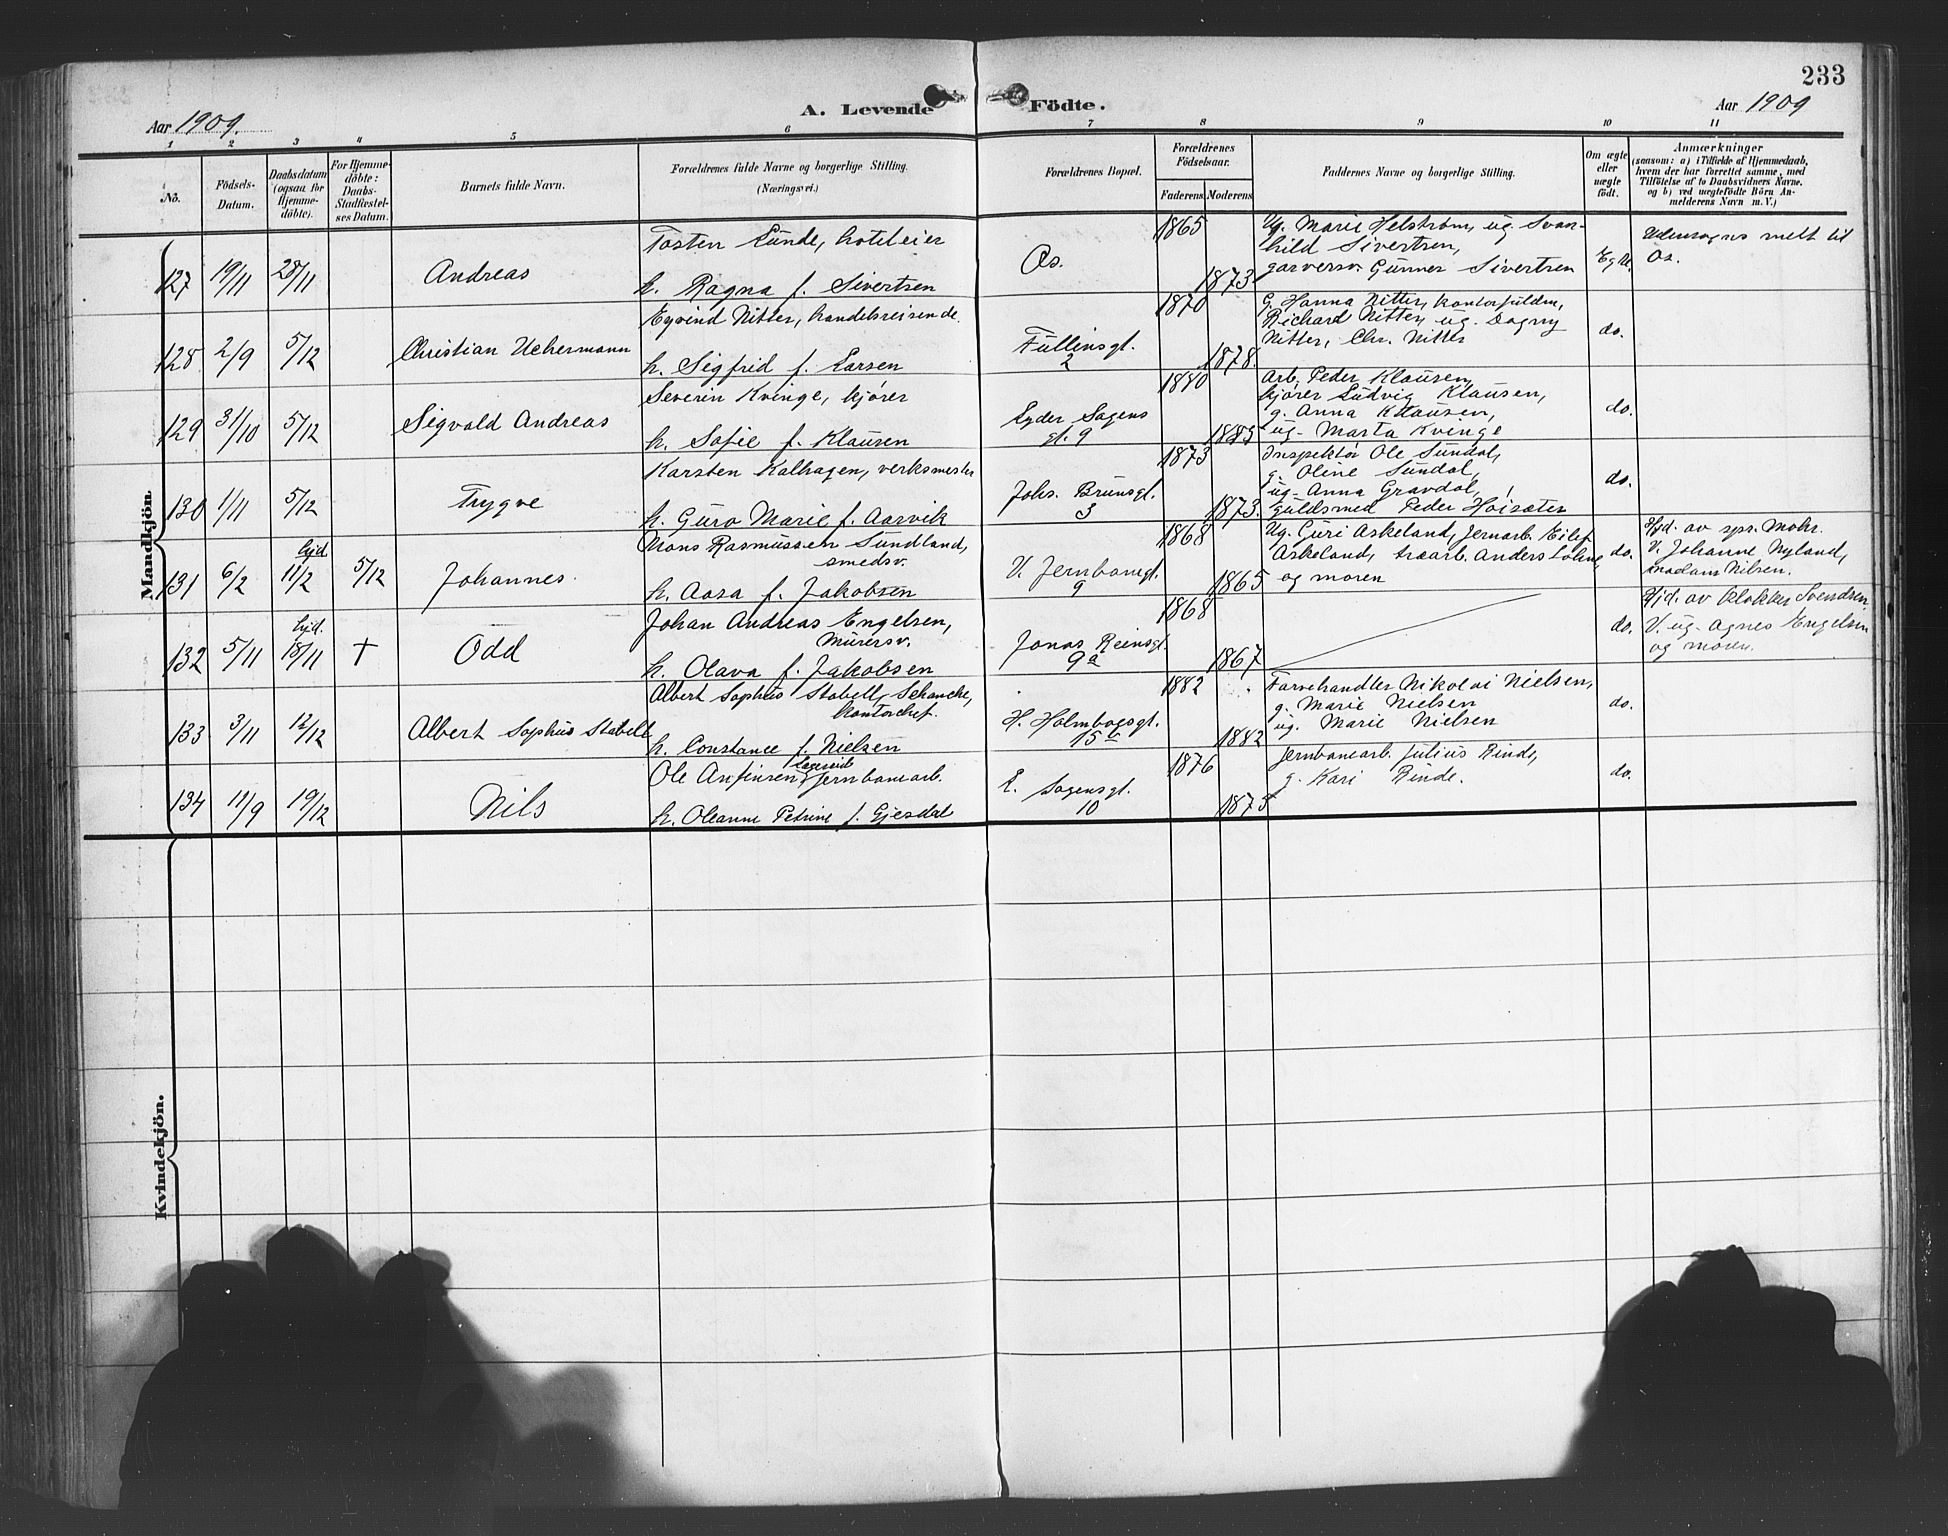 233
A. Levende Födte.
Aar 1909.
Aar 1909
1 2 3 4 5 6 7 8 9 10 11
No.
Födsels-Datum.
Daabsdatum (ogsaa for Hjemme-döbte).
For Hjemme-döbte: Daabs-Stadfæstel-ses Datum.
Barnets fulde Navn.
Forældrenes fulde Navne og borgerlige Stilling.
(Næringsvei.)
Forældrenes Bopæl.
Forældrenes Födselsaar.
Faderens Moderens
Faddernes Navne og borgerlige Stilling.
Om ægte eller uægte født.
Anmærkninger
(saasom: a) i Tilfælde af Hjemmedaab,
hvem der har forrettet samme, med
Tilföielse af to Daabsvidners Navne,
og b) ved uægtefödte Börn An-
melderens Navn m. V.)
Mandkjön.
127 19/11 28/11 Andreas
Tosten Lunde, hoteleier
h. Ragna f. Sivertsen
Os.
1865
1873
Ug. Marie Helström, ug. Svan-
hild Sivertsen,
garversv. Gunner Sivertsen
Eg
melt til
Os.
128 2/9 5/12 Christian Uchermann
Eyvind Nitter, handelsreisende.
h. Sigfrid f. Larsen
Fullinsgt.
2
1870
1878.
G. Hanna Nitter, kontorfuldm,
Richard Nitter, ug. Dagny
Nitter, Chr. Nitter
do.
129 31/10 5/12 Sigvald Andreas
Severin Kvinge, kjører
h. Sofie f. Klausen
Lyder Sagens
gt. 9
1880
1885
Arb. Peder Klausen,
kjører Ludvig Klausen,
g. Anna Klausen,
ug. Marta Kvinge
do.
130 1/11 5/12 Trygve
Karsten Kalhagen, verksmester
h. Guro Marie f. Aarvik
Johs. Brunsgt.
3
1873
1873.
Inspektør Ole Sundal,
g. Oline Sundal,
ug. Anna Gravdal,
guldsmed Peder Høisæter
do.
131 6/2 hjd. 11/2 5/12 Johannes.
Mons Rasmussen Sundland,
smedsv.
h. Aasa f. Jakobsen
V. Jernbanegt.
9
1868
1865
Ug. Guri Askeland, Jernarb. Eilef
Askeland, træarb. Anders
og moren
do.
Hjd. av spr. Mohr.
V. Johanne Nyland,
madam Nilsen.
132 5/11 hjd. 15/11 † Odd
Johan Andreas Engelsen,
murersv.
h. Olava f. Jakobsen
Jonas Reinsgt.
9a
1868
1867
do.
Hjd. av klokker Svendsen,
V. ug. Agnes Engelsen
og moren.
133 3/11 12/12 Albert Sophus Stabell
Albert Sophus Stabell Schancke,
kontorchef.
h. Constance f. Nielsen
H. Holmboesgt.
15b
1882
1882
Farvehandler Nikolai Nielsen,
g. Marie Nielsen
ug. Marie Nielsen
do.
134 11/9 19/12 Nils
Ole Anfinsen jernbanearb.
h. Oleanne Petrine f. Gjesdal
L. Sagensgt.
10
1876
1875
Jernbanearb. Julius Rinde,
g. Kari Rinde.
do.
Kvindekjön.